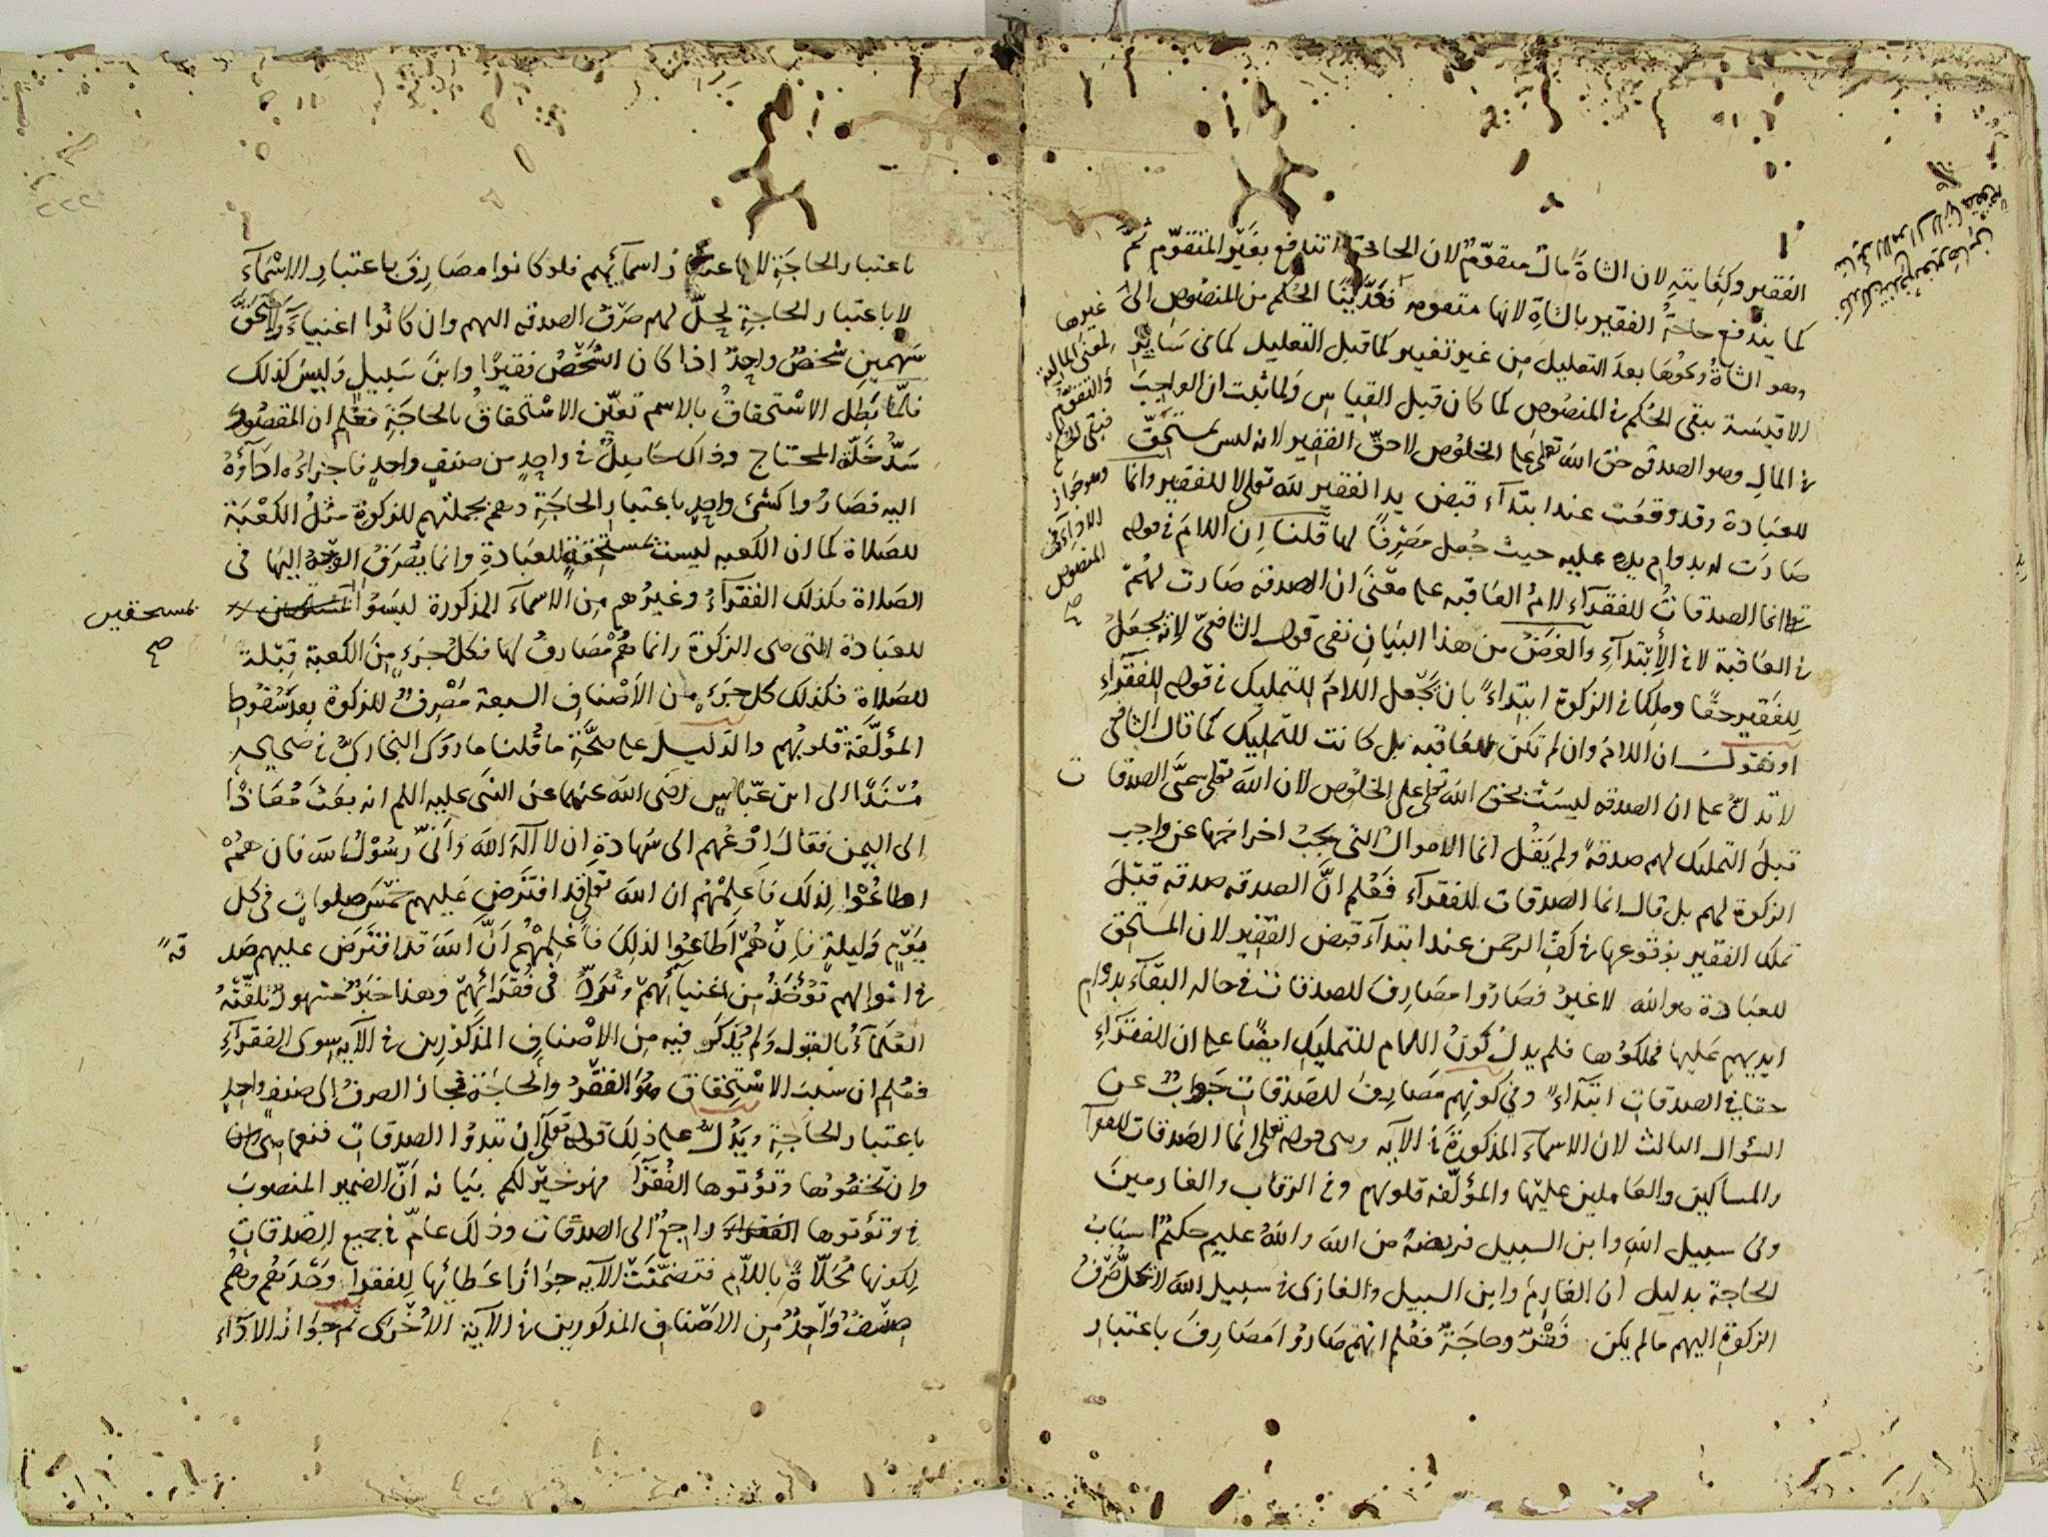 الفقير وكفايته لان الشاة مال متقوم لان الحاجة تندفع بغير المتقوم ثم
كما يندفع حاجة الفقير بالشاة لانها متقومه فعدينا الحكم من المنصوص الى غيرها
وهو الشاة ونحوها بعد التعليل من غير تغيير كما قبل التعليل كما في ساير
الاقيسة يبقى الحكم في المنصوص كما كان قبل القياس ولما ثبت ان الواجب
في المال وهو الصدقه حق الله تعلى على الخلوص لا حق الفقير لانه ليس بمستحق
للعبادة وقد وقعت عند ابتدآء قبض يد الفقير لله تعلى لا للفقير وانما
صارت له بدوام يده عليه حيث جعل مصرفا لها قلنا ان اللام في قوله
تعلى انما الصدقات للفقرآء لام العاقبه على معنى ان الصدقه صارت لهم
في العاقبة لا في الأبتدآء والغرض من هذا البيان نفي قول الشافعي لانه يجعل
للفقير حقا وملكا في الزكوة ابتداء بان يجعل اللام للتمليك في قوله للفقرآء
او نقول ان اللام وان لم تكن للعاقبه بل كانت للتمليك كما قال الشافعي
لا تدل على ان الصدقه ليست بحق الله تعلى على الخلوص لان الله تعلى سمى الصدقات
قبل التمليك لهم صدقة ولم يقل انما الاموال التي يجب اخراجها عن واجب
الزكوة لهم بل قال انما الصدقات للفقرآء فعلم ان الصدقه صدقه قبل
تملك الفقير بوقوعها في كف الرحمن عند ابتدآء قبض الفقير لان المستحق
للعبادة هو الله لا غير فصاروا مصارف للصدقات في حاله البقآء بدوام
ايديهم عليها فملكوها فلم يدل كون اللام للتمليك ايضا على ان للفقرآء
حقا في الصدقات ابتدآء وفي كونهم مصارف للصدقات جواب عن
السؤال الثالث لان الاسمآء المذكورة في الآيه وهي قوله تعلى انما الصدقات للفقرآ
والمساكين والعاملين عليها والمؤلفه قلوبهم وفي الرقاب والغارمين
وفي سبيل الله وابن السبيل فريضة من الله والله عليم حكيم اسباب
الحاجة بدليل ان الغارم وابن السبيل والغازى في سبيل الله لا يحل صرف
الزكوة اليهم ما لم يكن فقر وحاجة فعلم انهم صاروا مصارف باعتبار
لمعنى المالية
والتقوم
فبقى الحكم
وهو جواز
الاداء في
المنصوص
صح
باعتبار الحاجة لا باعتبار اسمآئهم فلو كانوا مصارف باعتبار الاسمآء
لا باعتبار الحاجة لحل لهم صرف الصدقه اليهم وان كانوا اغنيآء ولاستحق
سهمين شخص واحد اذا كان الشخص فقيرا وابن سبيل وليس كذلك
فلما بطل الاستحقاق بالاسم تعين الاستحقاق بالحاجة فعلم ان المقصود
سد خلة المحتاج وذاك حاصل في واحد من صنف واحد فاجزاءه اداؤه
اليه فصاروا كشئ واحد باعتبار الحاجة وهم بجملتهم للزكوة مثل الكعبة
للصلاة كما ان الكعبه ليست مستحقة للعبادة وانما يصرف الوجه اليها في
الصلاة فكذلك الفقرآء وغيرهم من الاسمآء المذكورة ليسوا بمستحقين
صح
للعبادة التي هي الزكوة وانما هم مصارف لها فكل جزء من الكعبة قبلة
للصلاة فكذلك كل جزء من الاصناف السبعة مصرف للزكوة بعد سقوط
المؤلفة قلوبهم والدليل على صحة ما قلنا ما روى البخارى في صحيحه
مسندا الى ابن عباس رضى الله عنهما عن النبى عليه السلم انه بعث معاذا
الى اليمن فقال ادعهم الى شهادة ان لا اله الا الله وانى رسول الله فان هم
اطاعوا لذلك فاعلمهم ان الله تعلى قد افترض عليهم خمس صلوات في كل
يوم وليلة فان هم اطاعوا لذلك فاعلمهم ان الله قد افترض عليهم صدقة
في اموالهم تؤخذ من اغنيآئهم وترد في فقرآئهم وهذا خبر مشهور تلقته
العلمآء بالقبول ولم يذكر فيه من الاصناف المذكورين في الآيه سوى الفقرآء
فعلم ان سبب الاستحقاق هو الفقر والحاجة فجاز الصرف الى صنف واحد
باعتبار الحاجة ويدل على ذلك قوله تعلى ان تبدوا الصدقات فنعما هى
وان تخفوها وتؤتوها الفقرآ فهو خير لكم بيانه ان الضمير المنصوب
في وتؤتوها الفقرآء راجع الى الصدقات وذلك عام في جميع الصدقات
لكونها محلاة باللام فتضمنت الآيه جواز اعطائها للفقرآ وحدهم وهم
صنف واحد من الاصناف المذكورين في الآية الاخرى ثم جواز الادآء